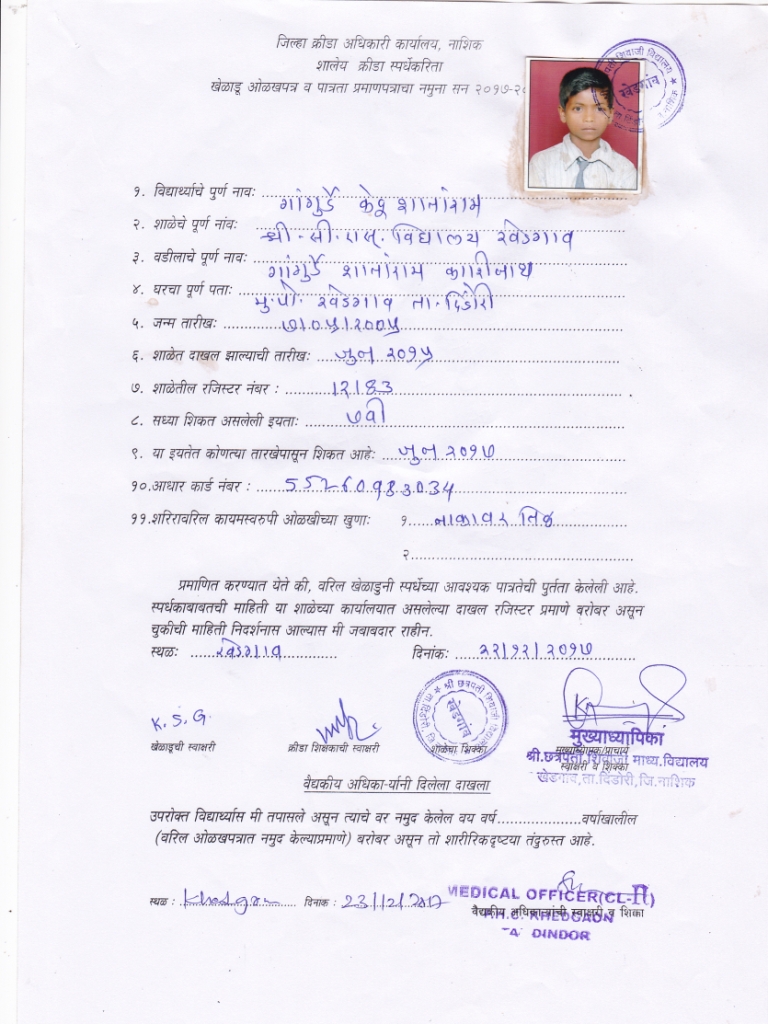 जिल्हा क्रीडा अधिकारी कार्यालय, नाशिक
शालेय क्रीडा स्पर्धेकरिता
खेळाडू ओळखपत्र व पात्रता प्रमाणपत्राचा नमुना सन २०१७-२०
खेडगांव
१. विद्यार्थ्याचे पुर्ण नाव: गांगुर्डे केदू शातांराम
२. शाळेचे पूर्ण नांव: श्री.सी.एस.विद्यालय खेडगाव
३. वडीलाचे पूर्ण नाव: गांगुर्डे शातांराम काशिनाथ
४. घरचा पूर्ण पता: मु.पो. खेडगाव ता.दिंडोरी
५. जन्म तारीख: ७।०५।२००५
६. शाळेत दाखल झाल्याची तारीख: जुन २०१५
७. शाळेतील रजिस्टर नंबर : 12183
८. सध्या शिकत असलेली इयता: ७वी
९. या इयतेत कोणत्या तारखेपासून शिकत आहे: जुन २०१७
१०.आधार कार्ड नंबर :
११.शरिरावरिल कायमस्वरुपी ओळखीच्या खुणा: १. नाकावर तिळ
२.
प्रमाणित करण्यात येते की, वरिल खेळाडुनी स्पर्धेच्या आवश्यक पात्रतेची पुर्तता केलेली आहे.
स्पर्धकाबाबतची माहिती या शाळेच्या कार्यालयात असलेल्या दाखल रजिस्टर प्रमाणे बरोबर असून
चुकीची माहिती निदर्शनास आल्यास मी जवाबदार राहीन.
स्थळ: खेडगाव दिनांक: २२/१२/२०१७
K.S.G.
खेळाडूची स्वाक्षरी क्रीडा शिक्षकाची स्वाक्षरी शाळेचा शिक्का मुख्याध्यापक/प्राचार्य
स्वाक्षरी व शिक्का
श्री छत्रपती शिवाजी विद्यालय
खेडगांव
मुख्याध्यापिका
श्री.छत्रपती शिवाजी माध्य.विद्यालय
खेडगाव,ता.दिंडोरी,जि.नाशिक
वैद्यकीय अधिका-यांनी दिलेला दाखला
उपरोक्त विद्यार्थ्यास मी तपासले असून त्याचे वर नमुद केलेल वय वर्ष वर्षाखालील
(वरिल ओळखपत्रात नमुद केल्याप्रमाणे) बरोबर असून तो शारीरिकदृष्टया तंदुरुस्त आहे.
स्थळ : Khedgaon दिनांक : 23/12/2017
वैद्यकीय अधिका-यांची स्वाक्षरी व शिका
MEDICAL OFFICER(CL-II)
KHEDGAON
DINDOR